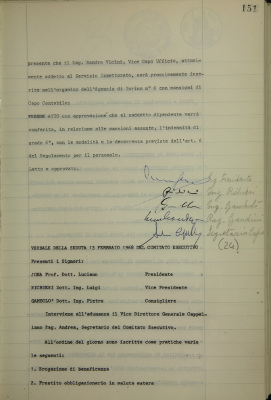 151
presente che il Rag. Sandro Vicini, Vice Capo Ufficio, attual-
mente addetto al Servizio Ispettorato, sarà prossimamente inse-
rito nell'organico dell'Agenzia di Torino n° 6 con mansioni di
Capo Contabile;
PRENDE ATTO con approvazione che al suddetto dipendente verrà
conferita, in relazione alle mansioni assunte, l'indennità di
grado 6°, con le modalità e la decorrenza previste dall'art. 6
del Regolamento per il personale.
Letto e approvato.
(24)
VERBALE DELLA SEDUTA 13 FEBBRAIO 1968 DEL COMITATO ESECUTIVO
Presenti i Signori:
JONA Prof. Dott. Luciano Presidente
Dott. Ing. Luigi Vice Presidente
Dott. Ing. Pietro Consigliere
Interviene all'adunanza il Vice Direttore Generale Cappel-
Rag. Andrea, Segretario del Comitato Esecutivo.
All'ordine del giorno sono iscritte come pratiche varie
le seguenti:
1. Erogazione di beneficenza
2. Prestito obbligazionario in valuta estera